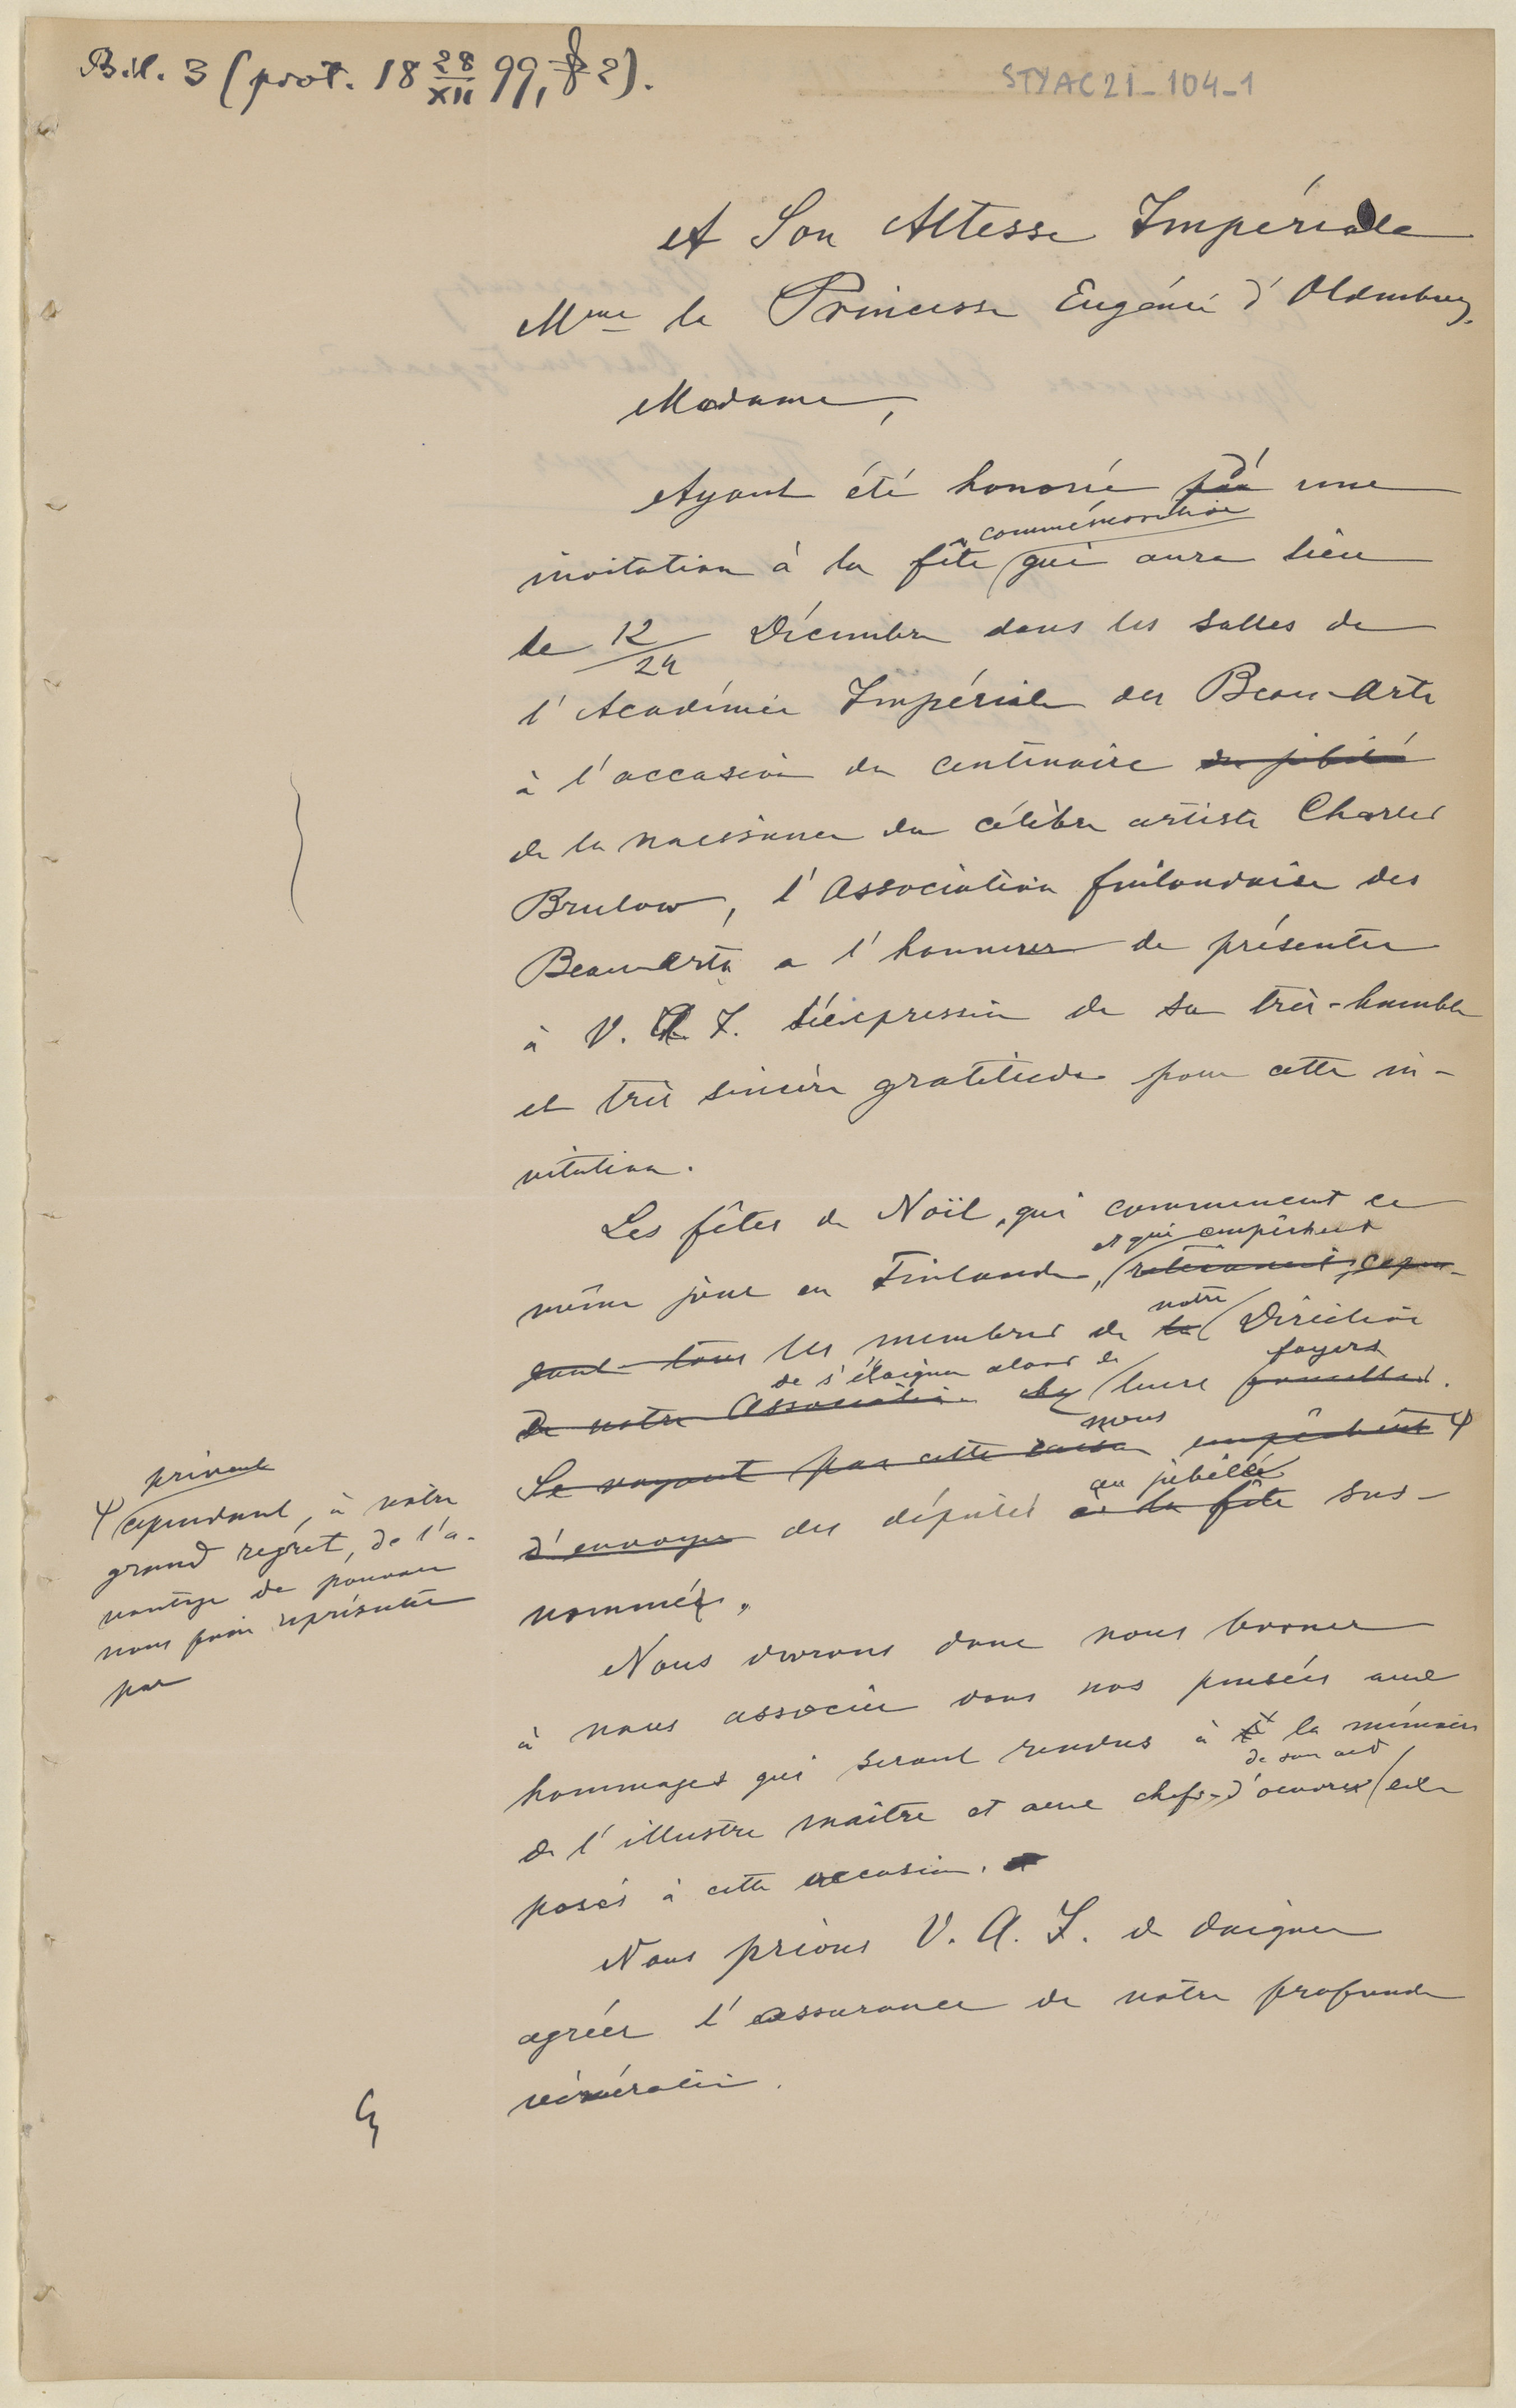 Bil. 3 (prot. 18 28/XII 99, § 2).
STYAC21-104-1
A Son Altesse Impériale
Mme la Princesse Eugénie d'Oldenburg.
Madame,
Ayant été honoré d' une
commémorative
invitation à la fête qui aura lieu
le 12/24 Décembre dans les salles de
l'Académie Impériale des Beaux-Arts
à l'occasion du centenaire du jubilé
de la naissance du célèbre artiste Charles
Brulow, l'Association finlandaise des
Beaux-Arts a l'honneur de présenter
à V. A. I. l'expression de sa très-humble
et très sincère gratitude pour cette in-
vitation.
Les fêtes de Noïl, qui commencent ce
et qui empêchent
même jour en Finlande, retiennent, cepen-
notre
dant tous les membres de la Direction
de s'éloigner alors de foyers
de notre Association chez leurs familles.
nous
Se voyant par cette raison empêchent φ
au jubilée
d'envoyer des députés à la fête sus-
nommée,
privent
φ cependant, à notre
grand regret, de l'a-
vantage de pouvoir
nous faire représenter
par
Nous devrons donc nous borner
à nous associer dans nos pensées aux
hommages qui seront rendus à la mémoire
de son art
de l'illustre maître et aux chefs-d'oeuvres ex-
posés à cette occasion.
Nous prions V. A. I. de daigner
agréer l'assurance de notre profonde
vénération.